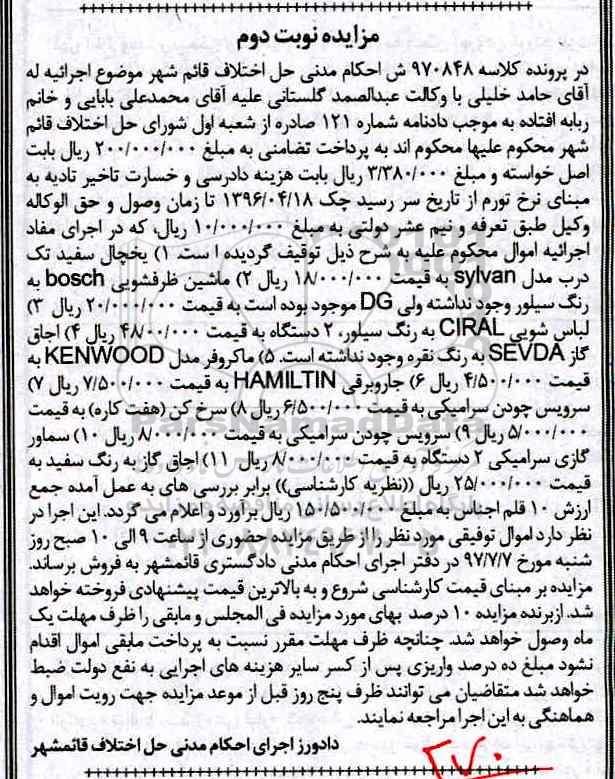 مزایده نوبت دوم
در پرونده کلاسه ۹۷۰۸۴۸ ش احکام مدنی حل اختلاف قائم شهر موضوع اجرائیه له
آقای حامد خلیلی با وکالت عبدالصمد گلستانی علیه آقای محمدعلی بابایی و خانم
ربابه افتاده به موجب دادنامه شماره ۱۲۱ صادره از شعبه اول شورای حل اختلاف قائم
شهر محکوم علیها محکوم اند به پرداخت تضامنی به مبلغ ۲۰۰/۰۰۰/۰۰۰ ریال بابت
اصل خواسته و مبلغ ۳/۳۸۰/۰۰۰ ریال بابت هزینه دادرسی و خسارت تاخیر تادیه به
مبنای نرخ تورم از تاریخ سر رسید چک ۱۳۹۶/۰۴/۱۸ تا زمان وصول و حق الوکاله
وکیل طبق تعرفه و نیم عشر دولتی به مبلغ ۱۰/۰۰۰/۰۰۰ ریال، که در اجرای مفاد
اجرائیه اموال محکوم علیه به شرح ذیل توقیف گردیده ا ست. ۱) یخچال سفید تک
درب مدل sylvan به قیمت ۱۸/۰۰۰/۰۰۰ ریال ۲) ماشین ظرفشویی bosch به
رنگ سیلور وجود نداشته ولی DG موجود بوده است به قیمت ۲۰/۰۰۰/۰۰۰ ریال ۳)
لباس شویی CIRAL به رنگ سیلور، ۲ دستگاه به قیمت ۴۸/۰۰۰/۰۰۰ ریال ۴) اجاق
گاز SEVDA به رنگ نقره وجود نداشته است. ۵) ماکروفر مدل KENWOOD به
قیمت ۴/۵۰۰/۰۰۰ ریال ۶) جاروبرقی HAMILTIN به قیمت ۷/۵۰۰/۰۰۰ ریال ۷)
سرویس چودن سرامیکی به قیمت ۶/۵۰۰/۰۰۰ ریال ۸) سرخ کن (هفت کاره) به قیمت
۵/۰۰۰/۰۰۰ ریال ۹) سرویس چودن سرامیکی به قیمت ۸/۰۰۰/۰۰۰ ریال ۱۰) سماور
گازی سرامیکی ۲ دستگاه به قیمت ۸/۰۰۰/۰۰۰ ریال ۱۱) اجاق گاز به رنگ سفید به
قیمت ۲۵/۰۰۰/۰۰۰ ریال ((نظریه کارشناسی)) برابر بررسی های به عمل آمده جمع
ارزش ۱۰ قلم اجناس به مبلغ ۱۵۰/۵۰۰/۰۰۰ ریال برآورد و اعلام می گردد. این اجرا در
نظر دارد اموال توقیفی مورد نظر را از طریق مزایده حضوری از ساعت ۹ الی ۱۰ صبح روز
شنبه مورخ ۹۷/۷/۷ در دفتر اجرای احکام مدنی دادگستری قائمشهر به فروش برساند.
مزایده بر مبنای قیمت کارشناسی شروع و به بالاترین قیمت پیشنهادی فروخته خواهد
شد. ازبرنده مزایده ۱۰ درصد بهای مورد مزایده فی المجلس و مابقی را ظرف مهلت یک
ماه وصول خواهد شد. چنانچه ظرف مهلت مقرر نسبت به پرداخت مابقی اموال اقدام
نشود مبلغ ده درصد واریزی پس از کسر سایر هزینه های اجرایی به نفع دولت ضبط
خواهد شد متقاضیان می توانند ظرف پنج روز قبل از موعد مزایده جهت رویت اموال و
هماهنگی به این اجرا مراجعه نمایند.
دادورز اجرای احکام مدنی حل اختلاف قائمشهر
۲۷۰
ParsNamadData